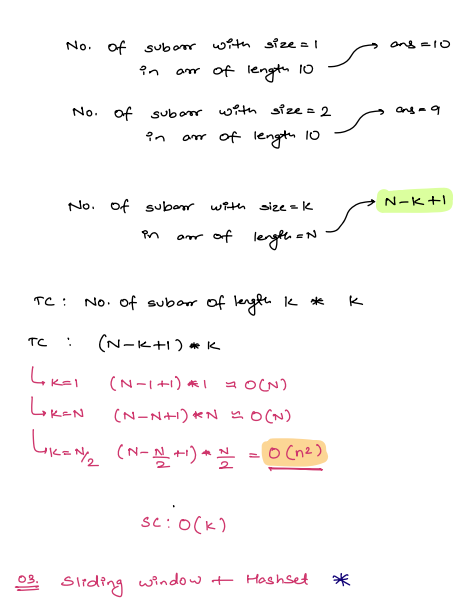 No. of subarr with size = 1 → ans = 10
in arr of length 10
No. of subarr with size = 2 → ans = 9
in arr of length 10
No. of subarr with size = K → N-K+1
in arr of length = N
TC : No. of subarr of length K * K
TC : (N-K+1) * K
K=1 (N-1+1) * 1 ≈ O(N)
K=N (N-N+1) * N ≈ O(N)
K=N/2 (N - N/2 + 1) * N/2 = O(n²)
SC : O(K)
03. Sliding window + Hashset *